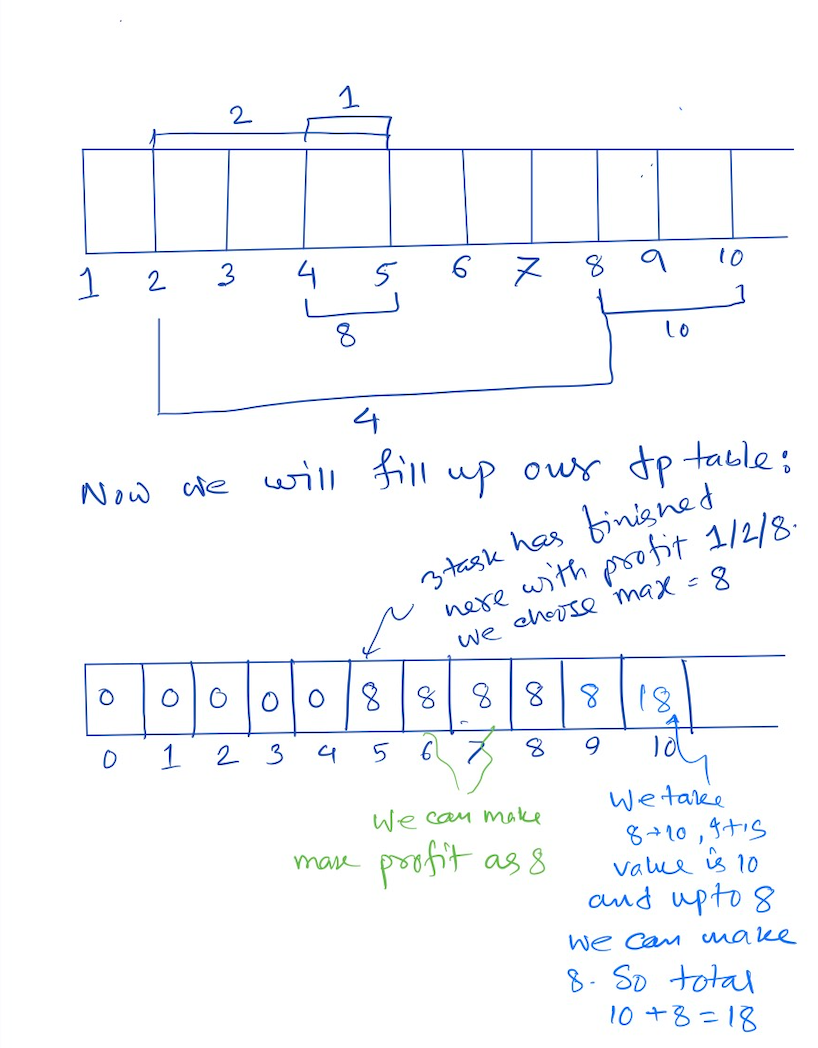 1
2
1 2 3 4 5 6 7 8 9 10
8
10
4
Now we will fill up our dp table:
3 task has finished
here with profit 1/2/8.
we choose max = 8
0 0 0 0 0 8 8 8 8 8 18
0 1 2 3 4 5 6 7 8 9 10
We can make
max profit as 8
We take
8→10,
value is 10
and upto 8
we can make
8. So total
10 + 8 = 18